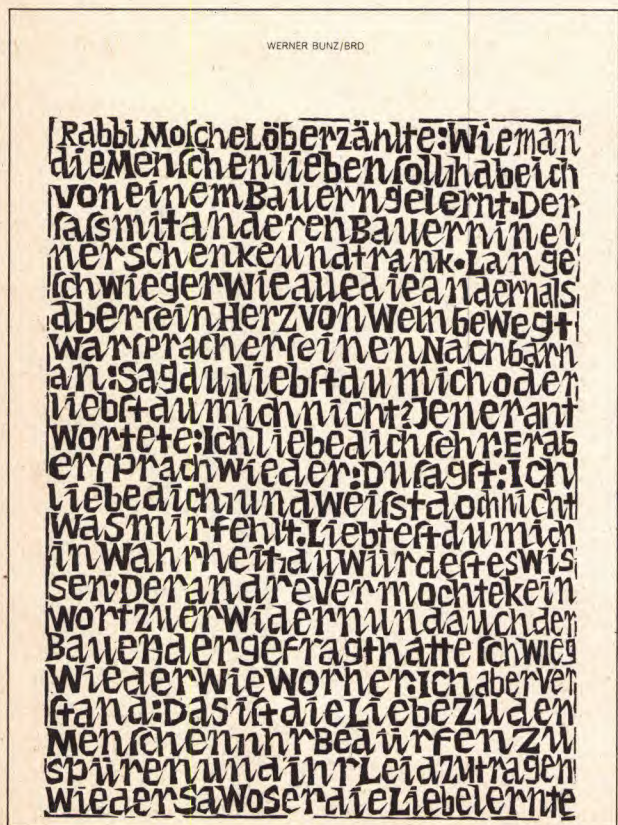 WERNER BUNZ/BRD
RabbiMoſcheLöberzählte:Wieman
dieMenſchenliebenſoll,habeich
voneinemBauerngelernt.Der
ſaſsmitanderenBauerninei
nerSchenkeundtrank.Lange
ſchwiegerwiealledieandernals
aberſeinHerzvonWeinbewegt
warſpracherſeinenNachbarn
an:Sagdu,liebſtdumichoder
liebſtdumichnicht?Jenerant
wortete:Ichliebedichſehr.Erab
erſprachwieder:Duſagſt:Ich
liebedich,undweiſstdochnicht
wasmirfehlt.Liebteſtdumich
inWahrheit,duwürdeſteswiſ
sen.Derandrevermochtekein
wortzuerwidernundauchder
Bauer,dergefragthatteſchwieg
wiederwievorher.Ichaberver
ſtand:DasiſtdieLiebezuden
Menſchen,ihrBedürfenzu
spürenundihrLeidzutragen